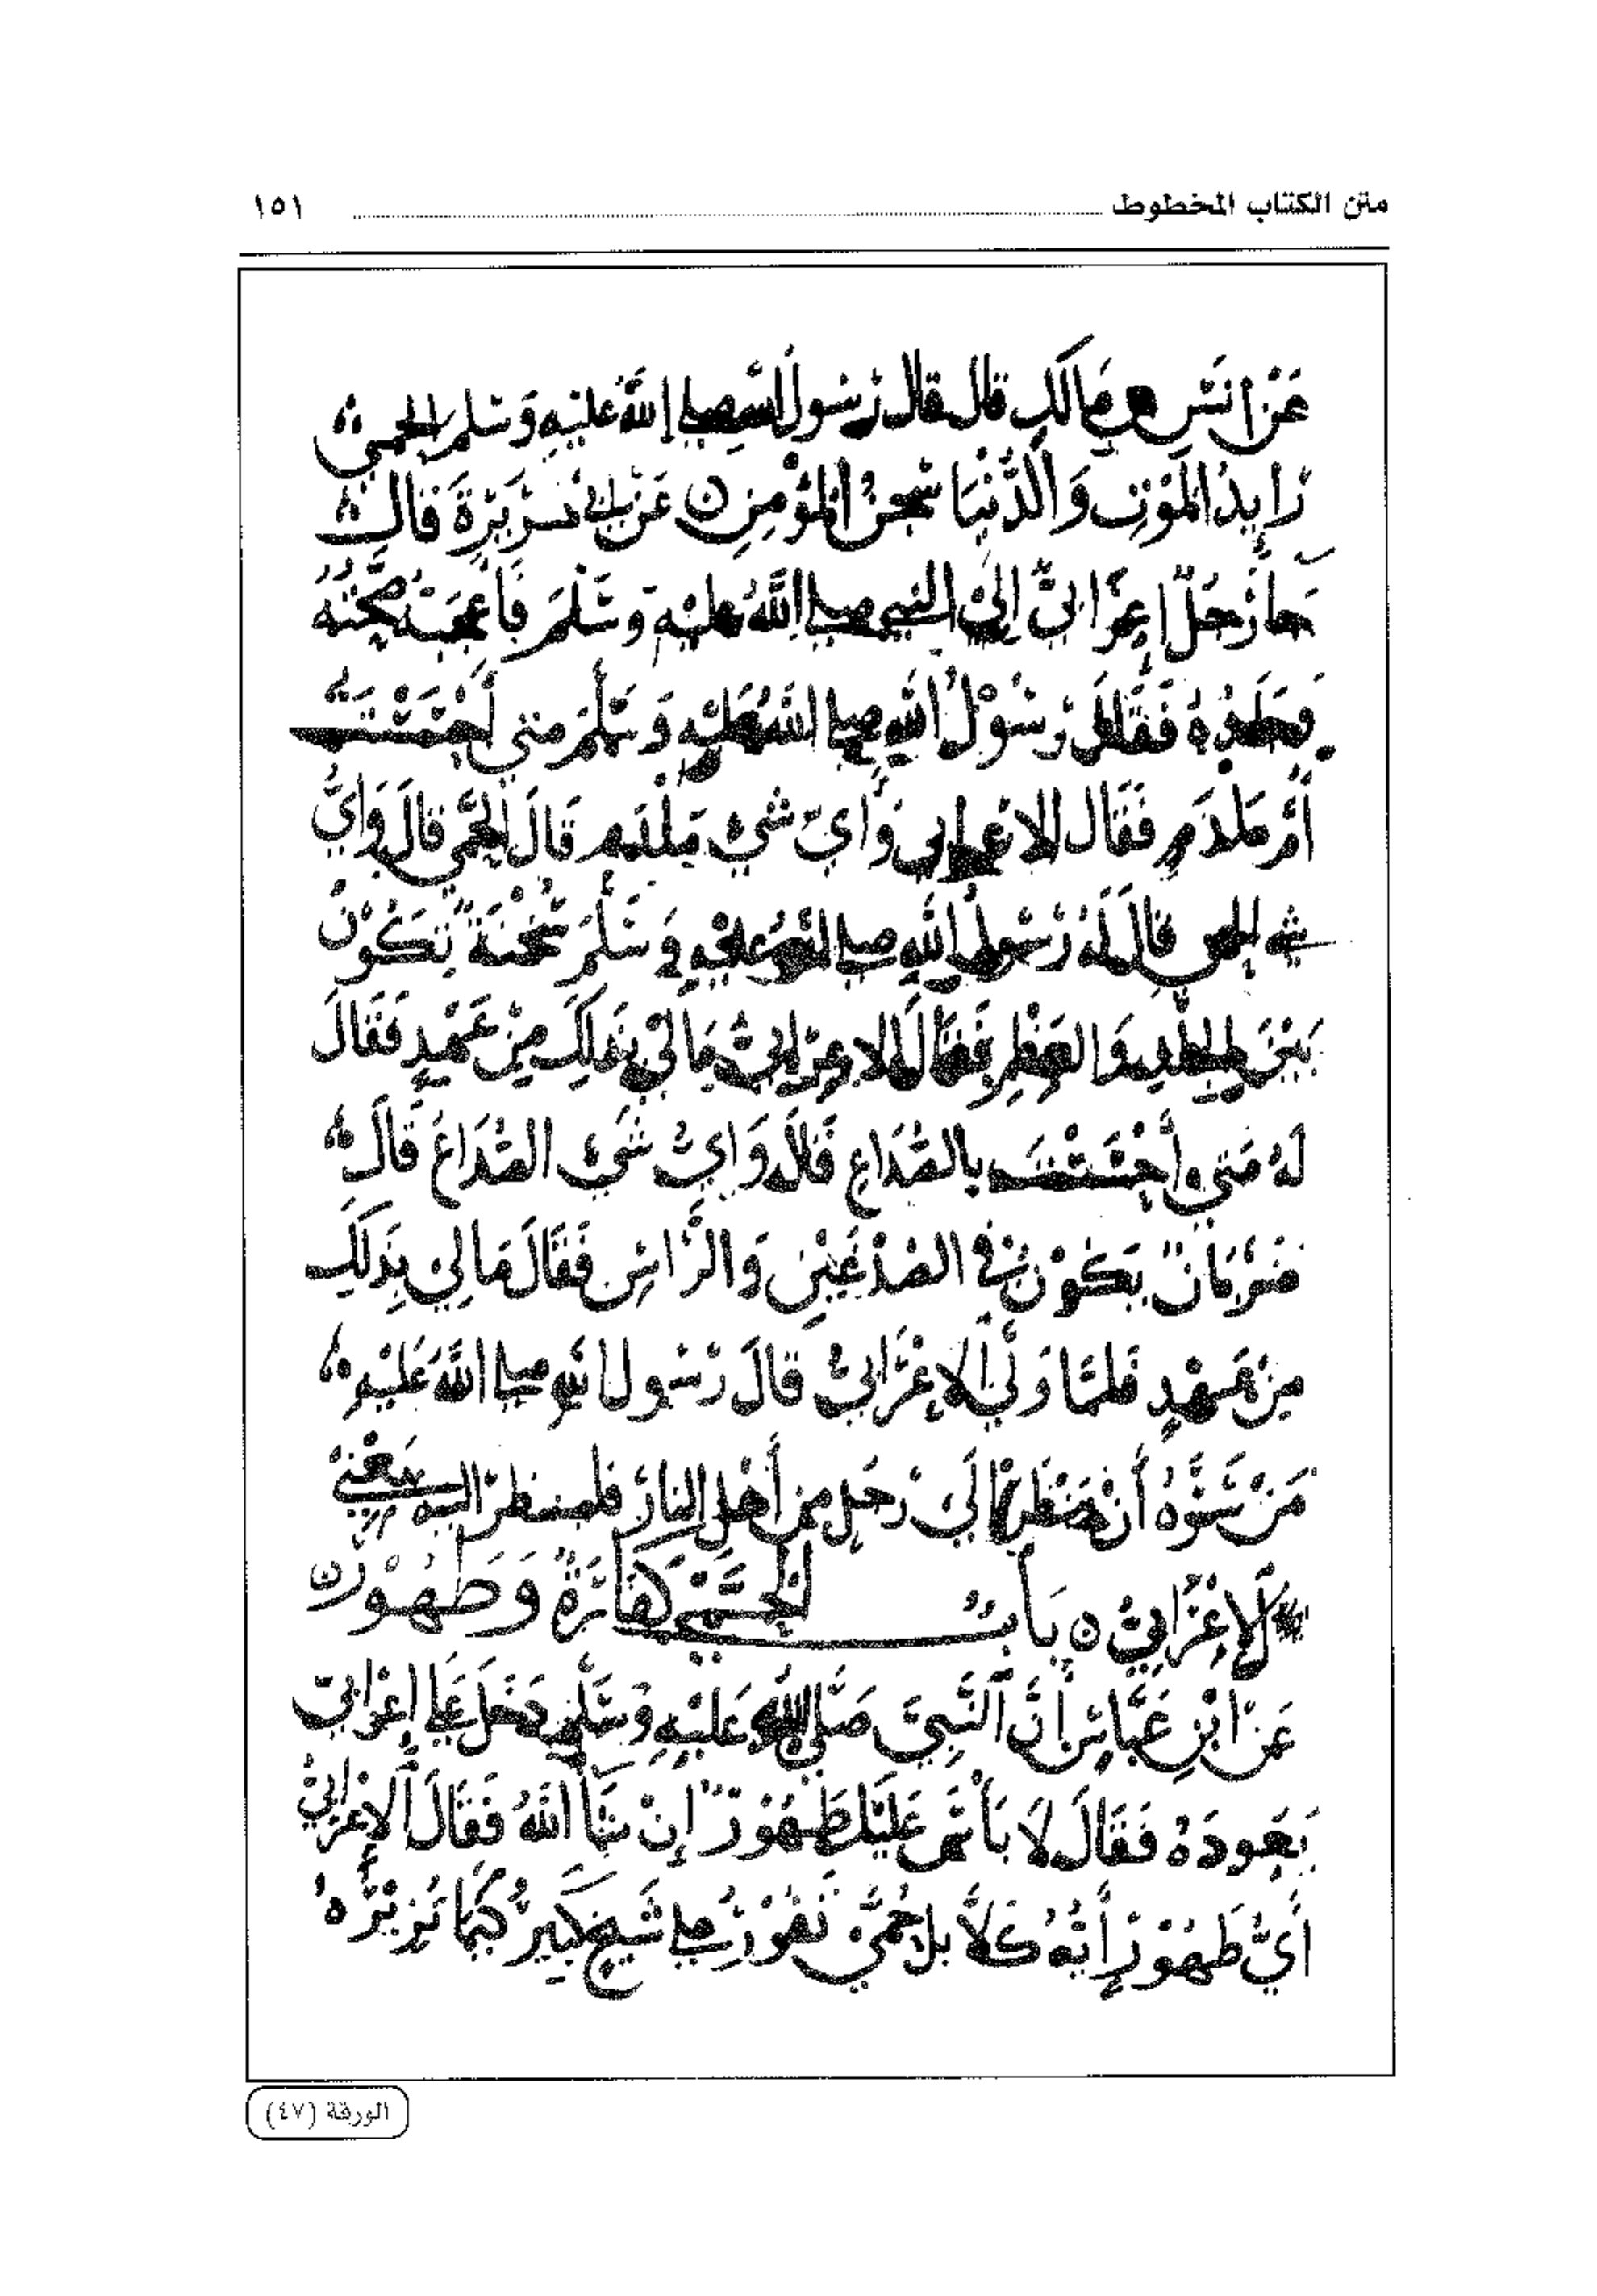 متن الكتاب المخطوط ١٥١
عَنْ أنَسِ بن مَالَكٍ قال قال رَسُول الله صلى اللَّهُ عليْهِ وَسَلم الحمىّ
رَايدُ المَوْتِ وَالدُّنْيَا سِجنُ المؤمِنِ عَنْ أبي هُرَيْرَةَ قال
جَا رَجُلٌ اعرَابىٌّ إلىَ النبي صلى اللَّهُ عليْهِ وَسَلَّمَ فَأَعْجَبَتْهُ صِحَّتُهُ
وجَلَدُهُ فَقَالَ رَسُوْلُ اللهِ صلى اللهُ عَلَيْهِ وَسَلَّمَ متى أَحْسَسْتَ
أُمَّ مَلْدَمٍ فَقَال الاعرابى وَأيّ شيْءٍ مَلْدَم قَالَ الحمَّى قالَ وَايُّ
شيء الحمى قالَ لَهُ رَسُولُ اللهِ صلى اللهُ عليْهِ وَسَلَّمَ سُخْنَةٌ تكُوْنُ
بَيْنَ الجِلْدِ وَالعَظْمِ فَقَالَ الاعرَابيُّ مَا لي بذَلِكَ مِنْ عَهْدٍ فَقَالَ
لَهُ مَتى أَحْسَسْتَ بالصُّدَاعِ قَالَ وَايُّ شَيْءٍ الصُّدَاعُ قَالَ
ضَرْبَانٌ يَكُوْنُ في الصُدْغَيْنِ وَالرَّاسِ فَقَالَ مَا لي بِذَلِكَ
مِنْ عَهْدٍ فَلمَّا وَلَّى الاعْرَابيُّ قالَ رَسُول اللهِ صلى اللَّهُ عَلَيْهِ
مَنْ سَرَّهُ أَنْ يَنْظُرَ إلَى رَجُلٍ مِن أَهْلِ النارِ فلينظر اليه يَعْني
الاعْرَابيُّ بَابُ الحُمَّى كفَّارَةٌ وَطَهُوْرٌ
عَنْ ابْنِ عَبَّاسٍ أَنَّ النَّبِيَّ صَلَّى اللهُ عَلَيْهِ وَسَلَّمَ دَخَلَ عَلى اعْرَابيّ
يَعُودَهُ فَقَالَ لاَ بَأسَ عَلَيْكَ طَهُوْرٌ إنْ شَأَ اللهُ فَقَالَ الاعْرَابيُّ
أَيُّ طَهُوْرٍ كَلاَّ بل حُمَّى تَفُوْرُ على شَيْخٍ كَبيرٍ كَيْمَا تُزِيْرَهُ
الورقة (٤٧)